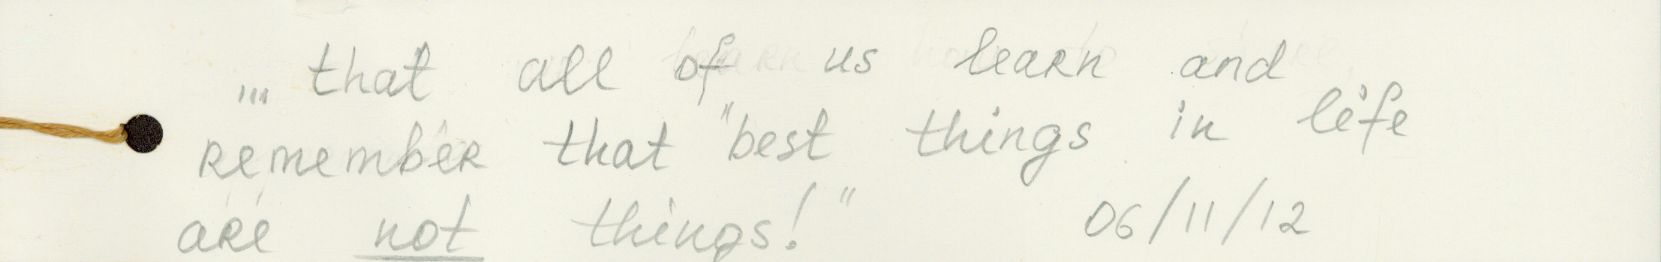 ... that all of us learn and
remember that "best things in life
are not things!" 06/11/12